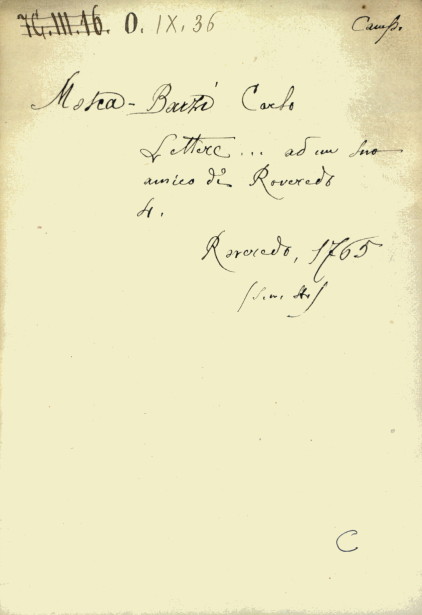 7C.III.16. O. IX. 36
Camp.
Mosca-Barzi Carlo
Lettere... ad un suo
amico di Roveredo
4.
Roveredo, 1765
C